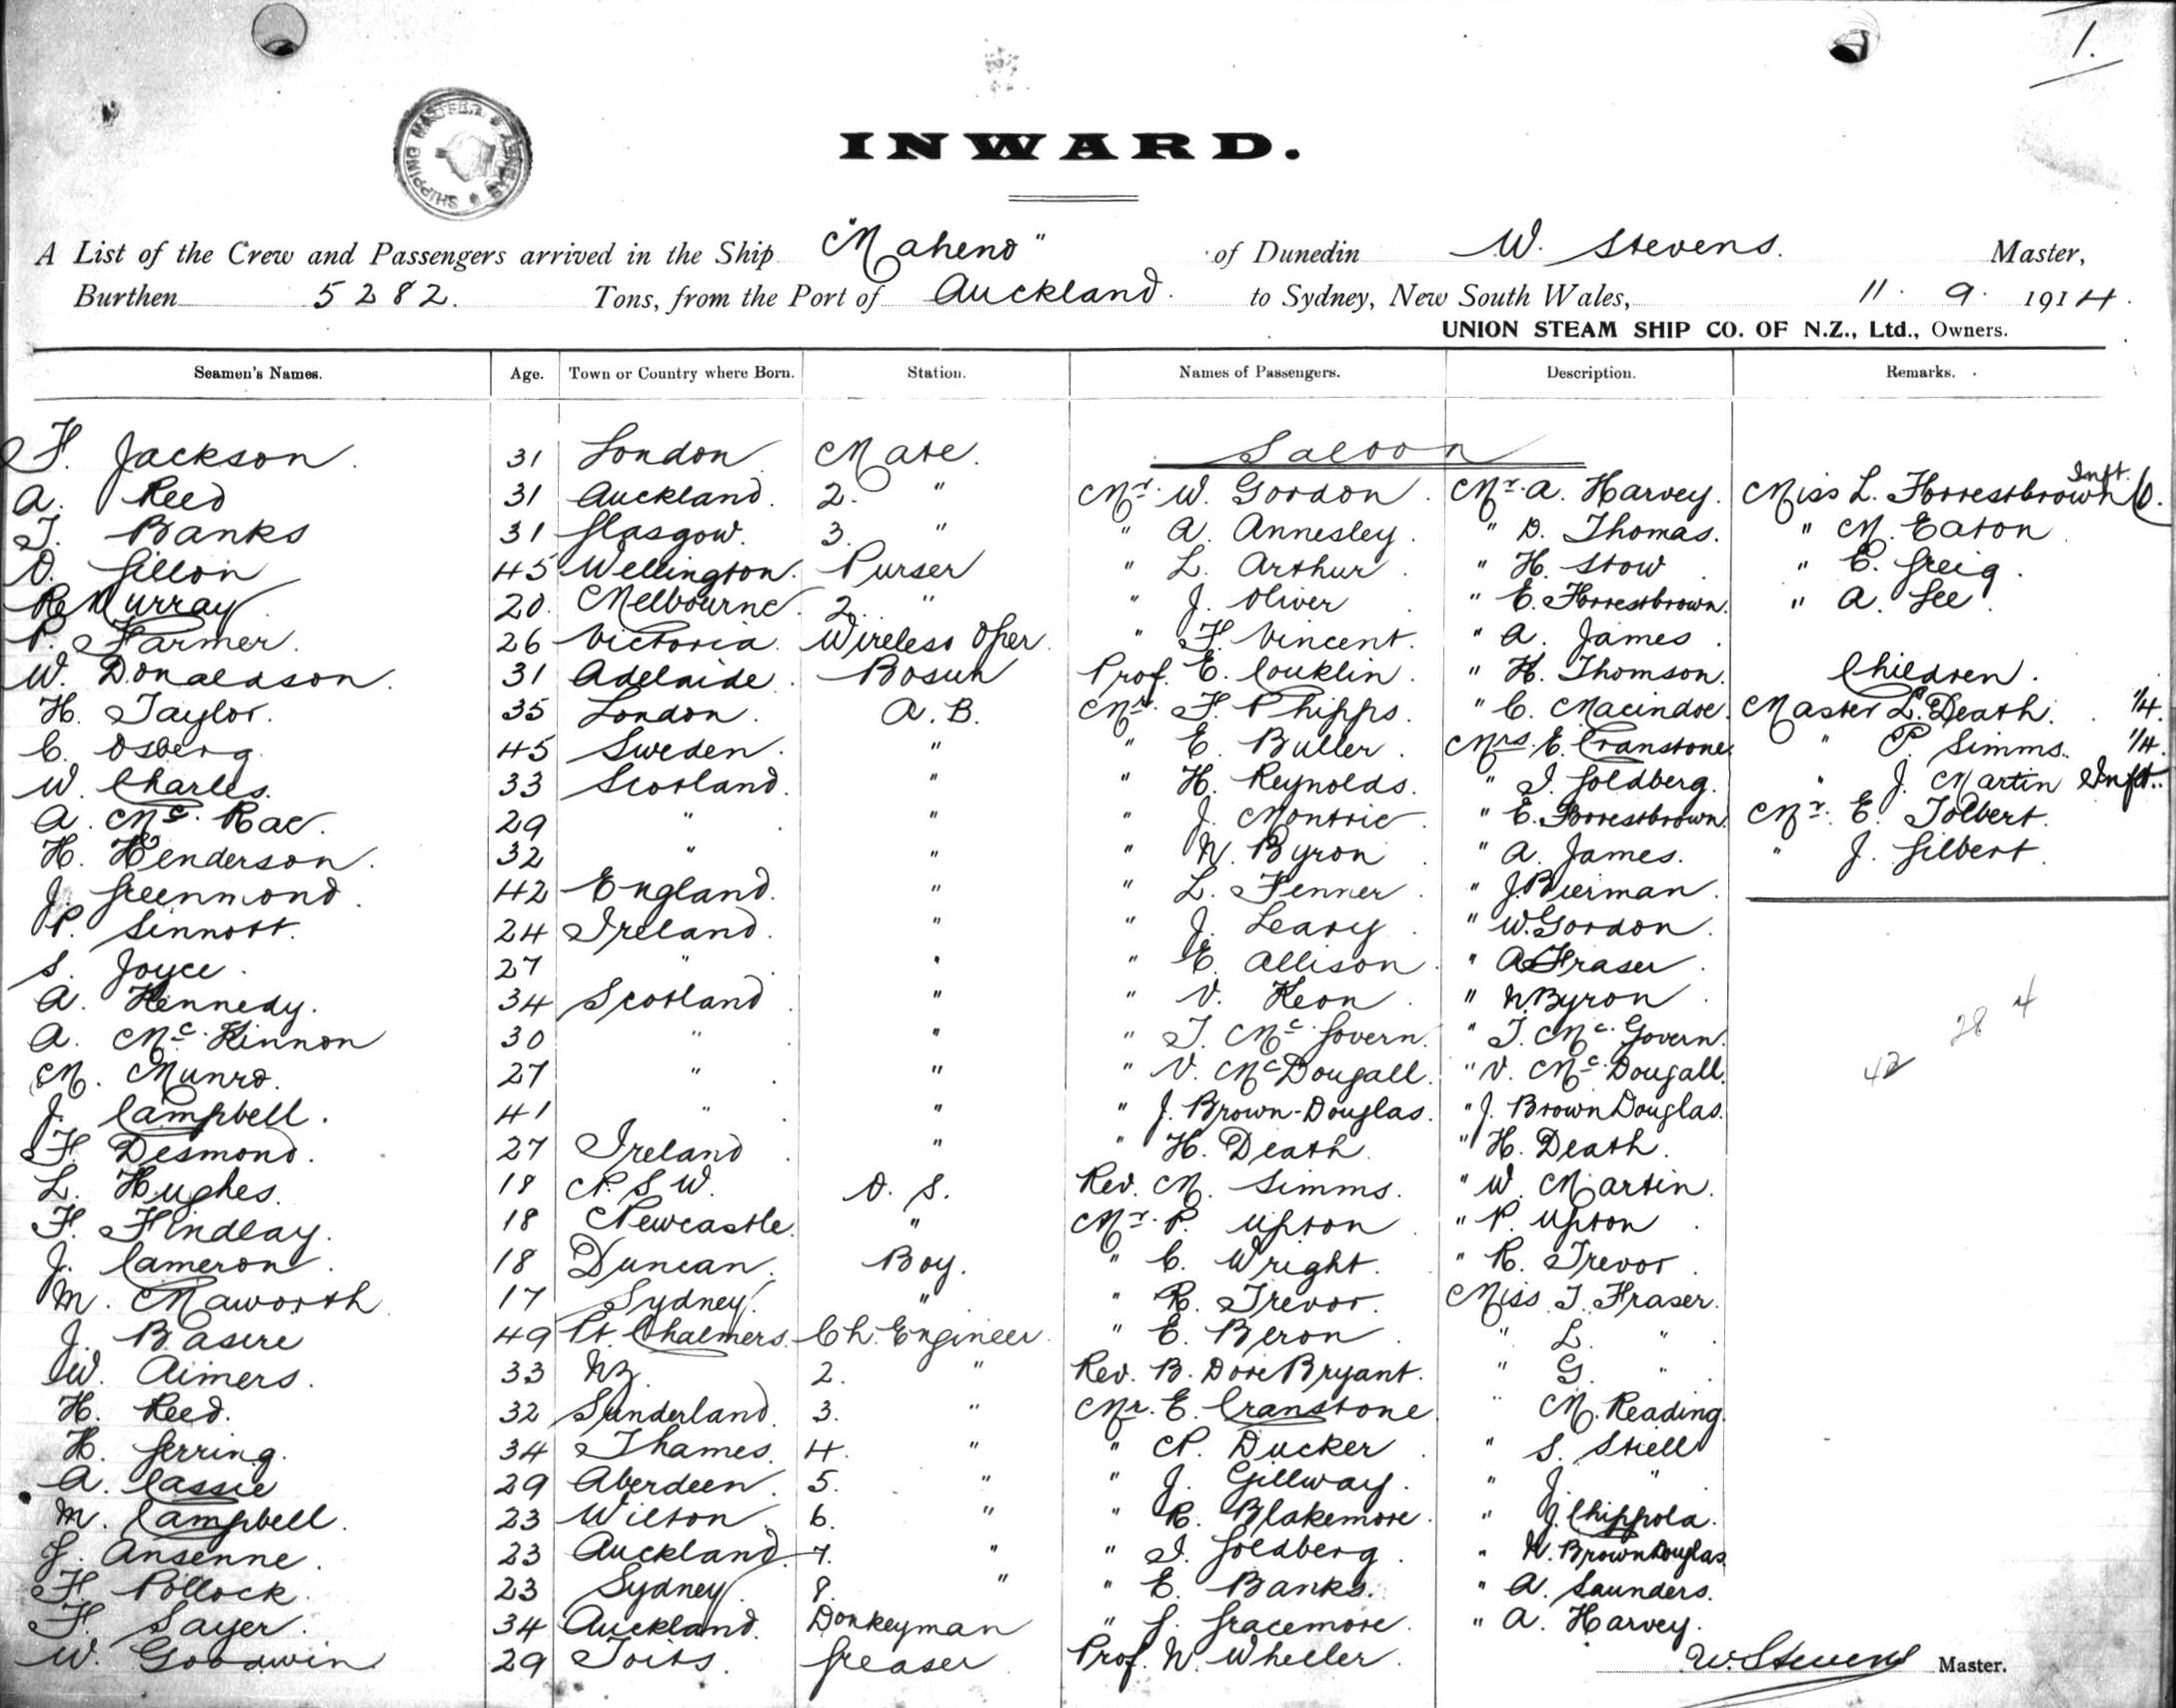 1.
SHIPPING MASTER SYDNEY
INWARD.
A List of the Crew and Passengers arrived in the Ship "Maheno" of Dunedin W. Stevens. Master,
Burthen 5282. Tons, from the Port of Auckland. to Sydney, New South Wales, 11. 9. 1914.
UNION STEAM SHIP CO. OF N.Z., Ltd., Owners.
Seamen's Names. Age. Town or Country where Born. Station. Names of Passengers. Description. Remarks.
F. Jackson. 31 London. Mate. Saloon
A. Reed 31 Auckland. 2. " Mr. W. Gordon. Mr. A. Harvey. Miss L. Forrestbrown Inft.
J. Banks 31 Glasgow. 3. " " A. Annesley. " D. Thomas. " M. Eaton
D. Gillon 45 Wellington. Purser " L. Arthur. " H. Stow " E. Greig.
R. Murray 20. Melbourne. 2. " " J. Oliver " E. Forrestbrown. " A. Lee.
P. Farmer. 26 Victoria. Wireless Oper. " F. Vincent. " A. James.
W. Donaldson. 31 Adelaide. Bosun Prof. E. Conklin. " H. Thomson. Children.
H. Taylor. 35 London. A.B. Mr. F. Phipps. " C. Macindoe. Master L. Death. 1/4.
C. Osberg. 45 Sweden. " " E. Buller. Mrs. E. Cranstone. " P. Simms. 1/4.
W. Charles. 33 Scotland. " " H. Reynolds. " I. Goldberg. " J. Martin Inft.
A. McRae. 29 " " " J. Montrie. " E. Forrestbrown. Mr. E. Tolbert.
H. Henderson. 32 " " " N. Byron. " A. James. " J. Gilbert.
J. Greenmond. 42 England. " " L. Fenner. " J. Bierman.
P. Sinnott. 24 Ireland. " " J. Leary. " W. Gordon.
S. Joyce. 27 " " " E. Allison. " A. Fraser.
A. Kennedy. 34 Scotland " " V. Keon. " N. Byron.
A. McKinnon 30 " " " T. McGovern. " T. McGovern.
M. Munro. 27 " " " V. McDougall. " V. McDougall.
J. Campbell. 41 " " " J. Brown-Douglas. " J. Brown Douglas.
F. Desmond. 27 Ireland " " H. Death. " H. Death.
L. Hughes. 18 N.S.W. O.S. Rev. M. Simms. " W. Martin.
F. Findlay. 18 Newcastle. " Mr. P. Upton " P. Upton
J. Cameron. 18 Duncan. Boy. " C. Wright. " R. Trevor.
M. Maworth 17 Sydney. " " R. Trevor. Miss I. Fraser.
J. Basire 49 Pt. Chalmers. Ch. Engineer. " E. Beron. " L. "
W. Aimers. 33 NZ. 2. " Rev. B. Dore Bryant. " G. "
H. Reed. 32 Sunderland. 3. " Mr. E. Cranstone " M. Reading.
H. Gerring. 34 Thames. 4. " " N. Ducker. " S. Stiell
A. Cassie 29 Aberdeen. 5. " " J. Gillway. " J. "
M. Campbell. 23 Wilton. 6. " " R. Blakemore. " J. Chippola.
J. Ansenne. 23 Auckland. 7. " " I. Goldberg. " N. Brown Douglas.
F. Pollock. 23 Sydney 8. " " E. Banks. " A. Saunders.
F. Sayer. 34 Auckland. Donkeyman " J. Gracemore. " A. Harvey.
W. Goodwin 29 Greaser Prof. W. Wheeler. W. Stevens Master.
28 4
42